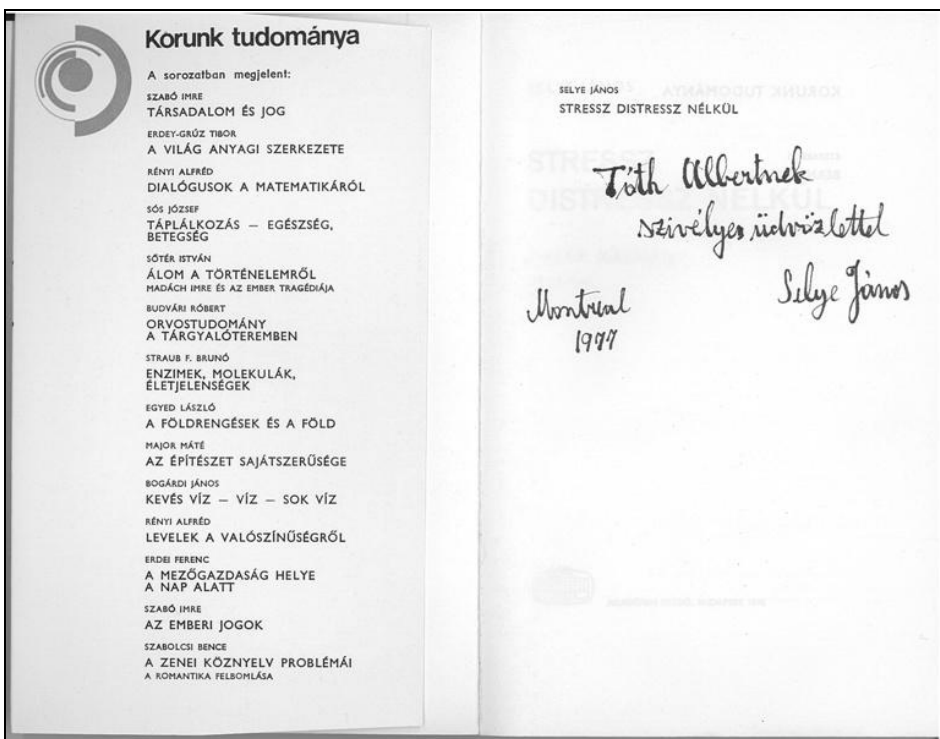 Korunk tudománya
A sorozatban megjelent:
SZABÓ IMRE
TÁRSADALOM ÉS JOG
ERDEY-GRÚZ TIBOR
A VILÁG ANYAGI SZERKEZETE
RÉNYI ALFRÉD
DIALÓGUSOK A MATEMATIKÁRÓL
SÓS JÓZSEF
TÁPLÁLKOZÁS — EGÉSZSÉG,
BETEGSÉG
SŐTÉR ISTVÁN
ÁLOM A TÖRTÉNELEMRŐL
MADÁCH IMRE ÉS AZ EMBER TRAGÉDIÁJA
BUDVÁRI RÓBERT
ORVOSTUDOMÁNY
A TÁRGYALÓTEREMBEN
STRAUB F. BRUNÓ
ENZIMEK, MOLEKULÁK,
ÉLETJELENSÉGEK
EGYED LÁSZLÓ
A FÖLDRENGÉSEK ÉS A FÖLD
MAJOR MÁTÉ
AZ ÉPÍTÉSZET SAJÁTSZERŰSÉGE
BOGÁRDI JÁNOS
KEVÉS VÍZ — VÍZ — SOK VÍZ
RÉNYI ALFRÉD
LEVELEK A VALÓSZÍNŰSÉGRŐL
ERDEI FERENC
A MEZŐGAZDASÁG HELYE
A NAP ALATT
SZABÓ IMRE
AZ EMBERI JOGOK
SZABOLCSI BENCE
A ZENEI KÖZNYELV PROBLÉMÁI
A ROMANTIKA FELBOMLÁSA
SELYE JÁNOS
STRESSZ DISTRESSZ NÉLKÜL
Tóth Albertnek
szívélyes üdvözlettel
Selye János
Montreal
1977